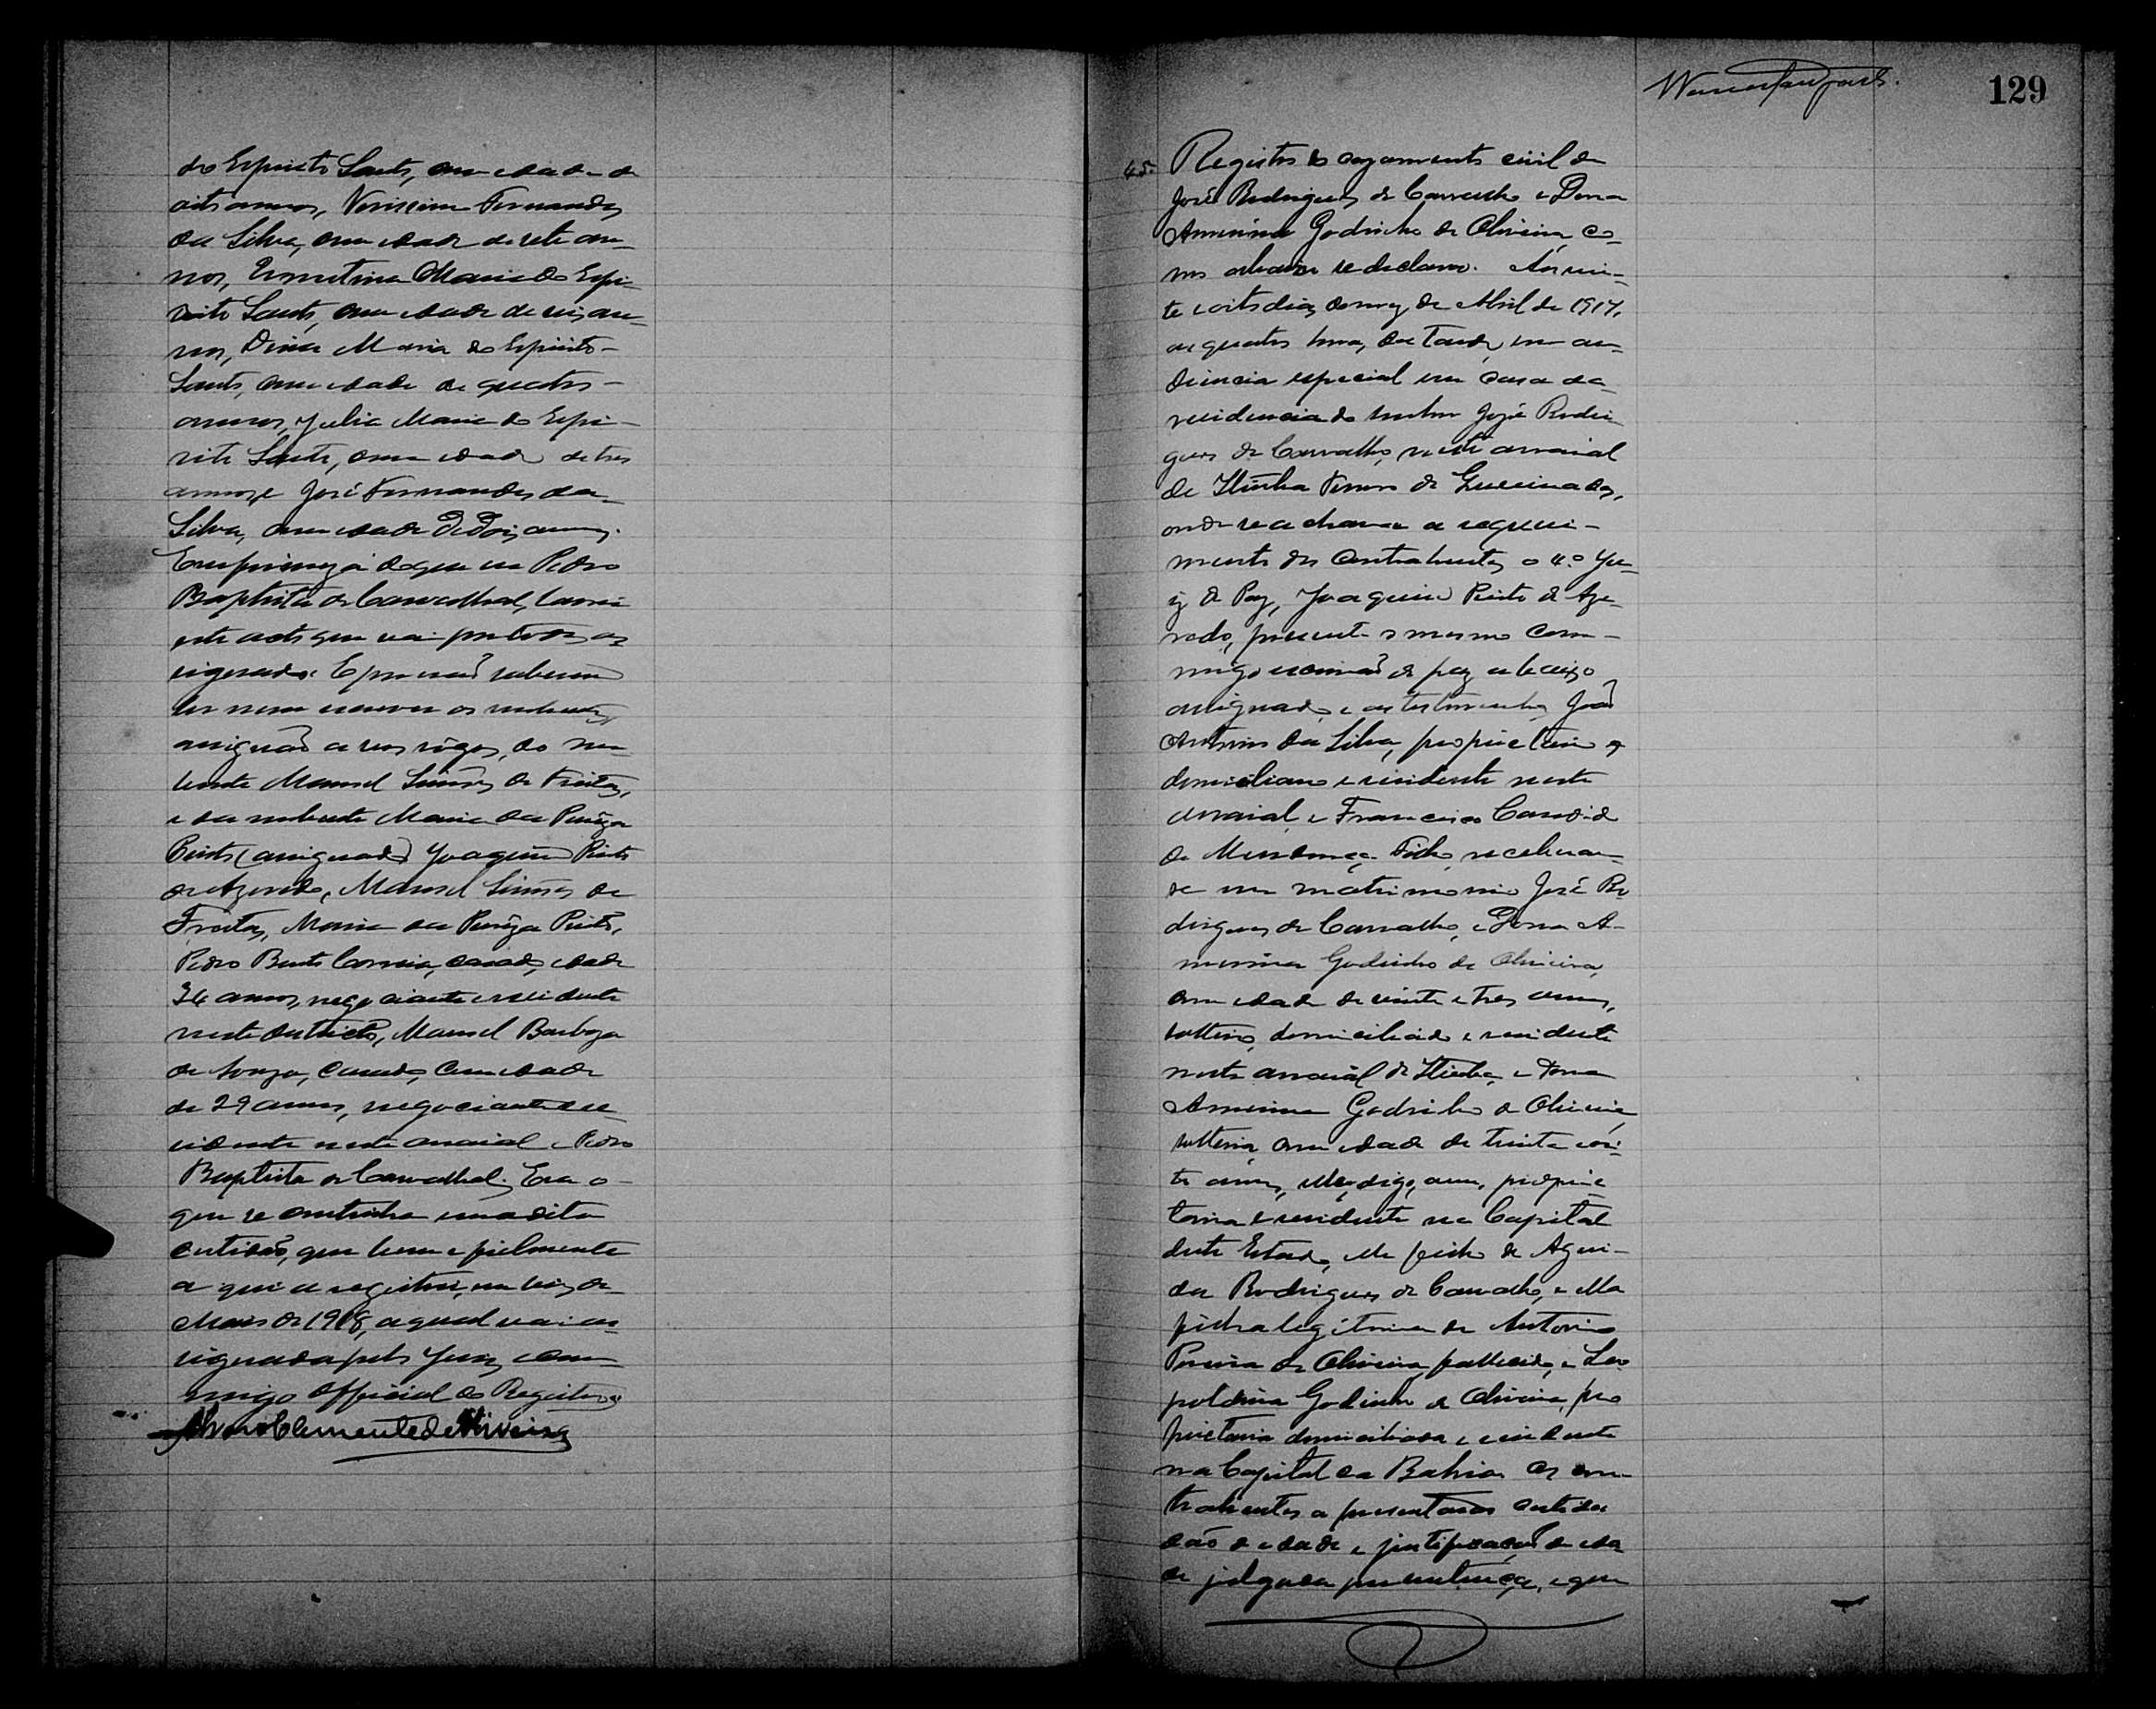 do Espirito Santo, com edade de
oito annos, Verissimo Fernandes
da Silva, com edade de sete an-
nos, Ernestina Maria do Espi-
rito Santo, com edade de seis an-
nos, Maria do Espirito-
Santo, com edade de quatro-
annos, Julia Maria do Espi-
rito Santo, com edade de tres
annos, e José Fernandes da
Silva, com edade de dois annos.
Em firmeza do que eu Pedro
Baptista de Carvalhal, lavrei
este acto que vai por todos as-
signado. E por não saberem
ler nem escrever os nubentes
assignão a seus rôgos, do nu-
bente Manoel Simões de Freitas,
e da nubente Maria da Pureza
Pinto (assignado) Joaquim Pinto
de Azevedo, Manoel Simões de
Freitas, Maria da Pureza Pinto,
Pedro Bento Correia, casado, edade
36 annos, negociante e residente
neste districto, Manoel Barboza
de Souza, casado, com edade
de 29 annos, negociante e re-
sidente neste arraial e Pedro
Baptista de Carvalhal. Era o-
que se continha em a dita
certidão, que bem e fielmente
aqui a registrei, em seis de
Maio de 1918, a qual vai as-
signada pelo Juiz, com-
migo Official do Registro
Clemente de Oliveira
129
45. Registro do cazamento civil de
José Rodrigues de Carvalho e Dona
Amerina Godinho de Oliveira, co-
mo abaixo se declara. Aos vin-
te e oito dias do mez de Abril de 1917,
as quatro horas da tarde, em au-
diencia especial em casa da
residencia do senhor José Rodri-
gues de Carvalho, neste arraial
de Termo de
onde se achava a requeri-
mento dos contrahentes o 4.º Ju-
iz de Paz, Joaquim Pinto de Aze-
vedo, presente o mesmo com-
migo escrivão de paz abaixo
assignado, e as testimunhas João
Antonio da Silva, proprietario e
domiciliano e residente neste
arraial, e Francisco Candido
de Mendonça Filho, receberam-
se em matrimonio José Ro-
drigues de Carvalho, e Dona A-
merina Godinho de Oliveira,
com edade de vinte e tres annos,
solteiro, domiciliado e residente
neste arraial de e Dona
Amerina Godinho de Oliveira,
solteira, com edade de trinta e oi-
to annos, digo, annos, proprie-
taria e residente na Capital
deste Estado, elle filho de Agui-
da Rodrigues de Carvalho, e ella
filha legitima de Antonio
Pereira de Oliveira, fallecido, e Leo-
poldina Godinho de Oliveira, pro-
prietaria domiciliada e residente
na Capital da Bahia. Os con-
trahentes apresentaram certi-
dão de edade e justificação de eda-
de julgada por sentença, e que